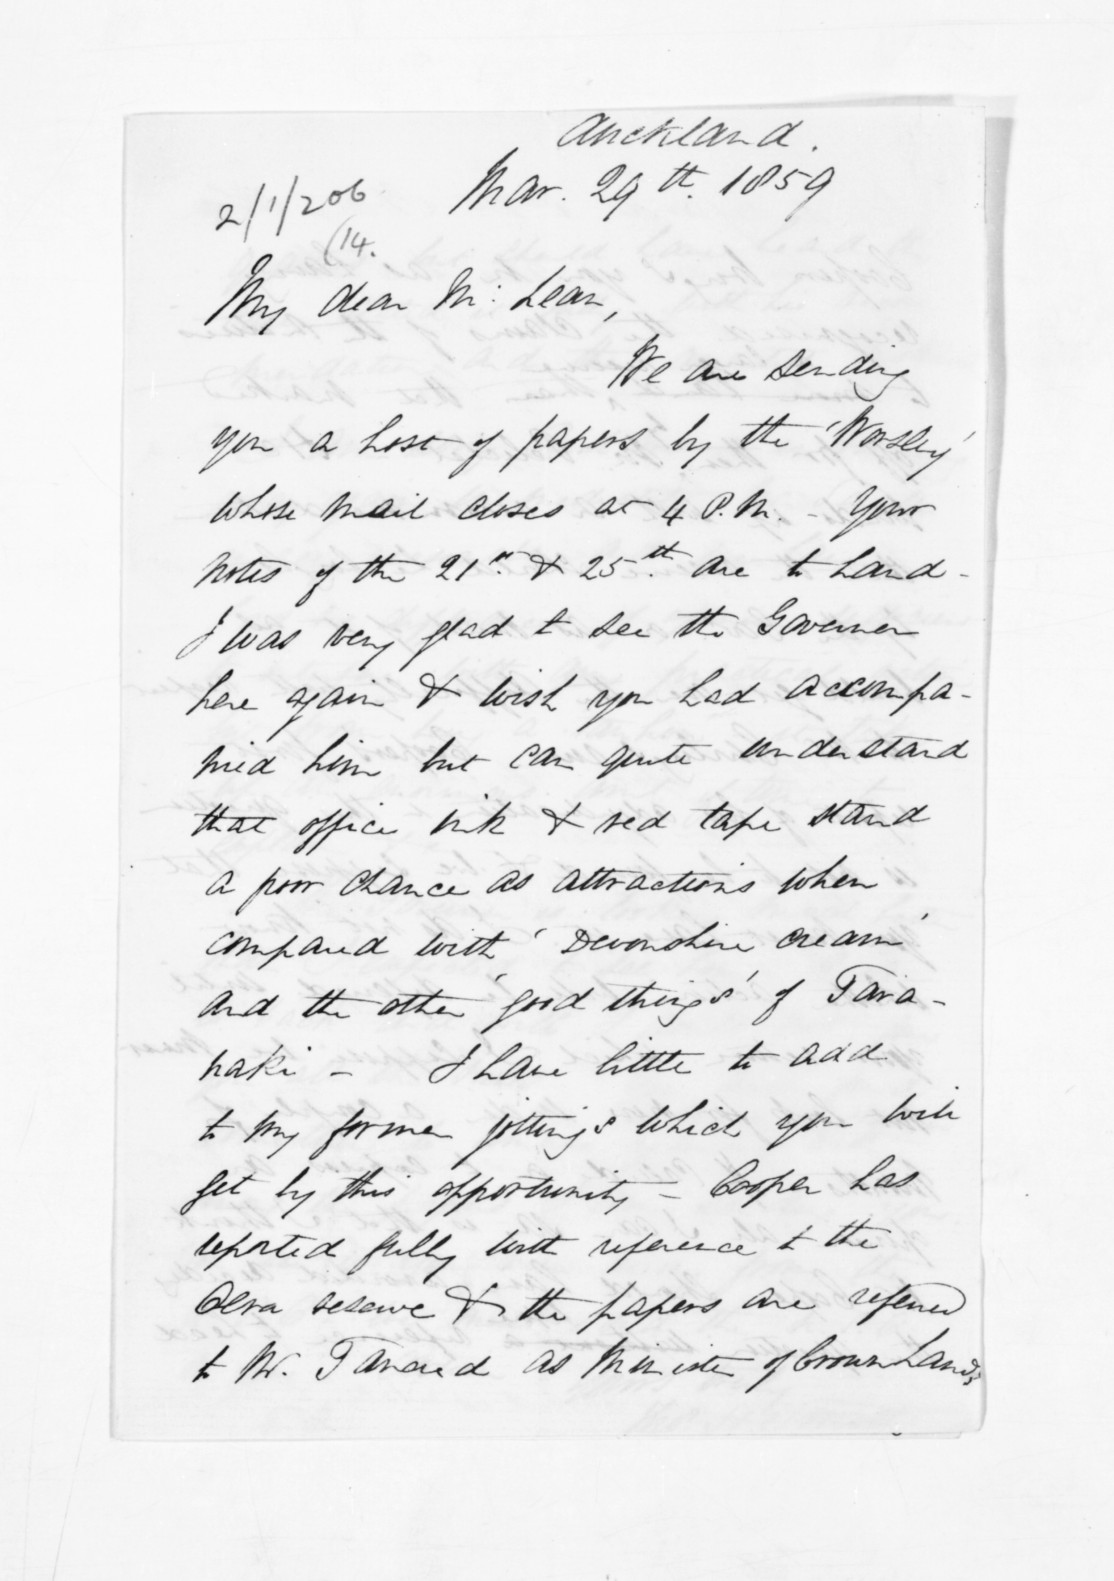 Auckland.
Mar. 29th. 1859
2/1/206
(14.
My dear McLean,
We are sending
you a host of papers by the 'Worsley'
whose mail closes at 4 P.M. - Your
notes of the 21st. & 25th. are to hand -
I was very glad to see the Governor
here again & wish you had accompa-
nied him but can quite understand
that office ink & red tape stand
a poor chance as attractions when
compared with 'Devonshire cream'
and the other 'good things' of Tara-
naki - I have little to add
to my former jottings which you will
get by this opportunity - Cooper has
reported fully with reference to the
reserve & the papers are referred
to Mr. Tancred as Minister of Crown Lands